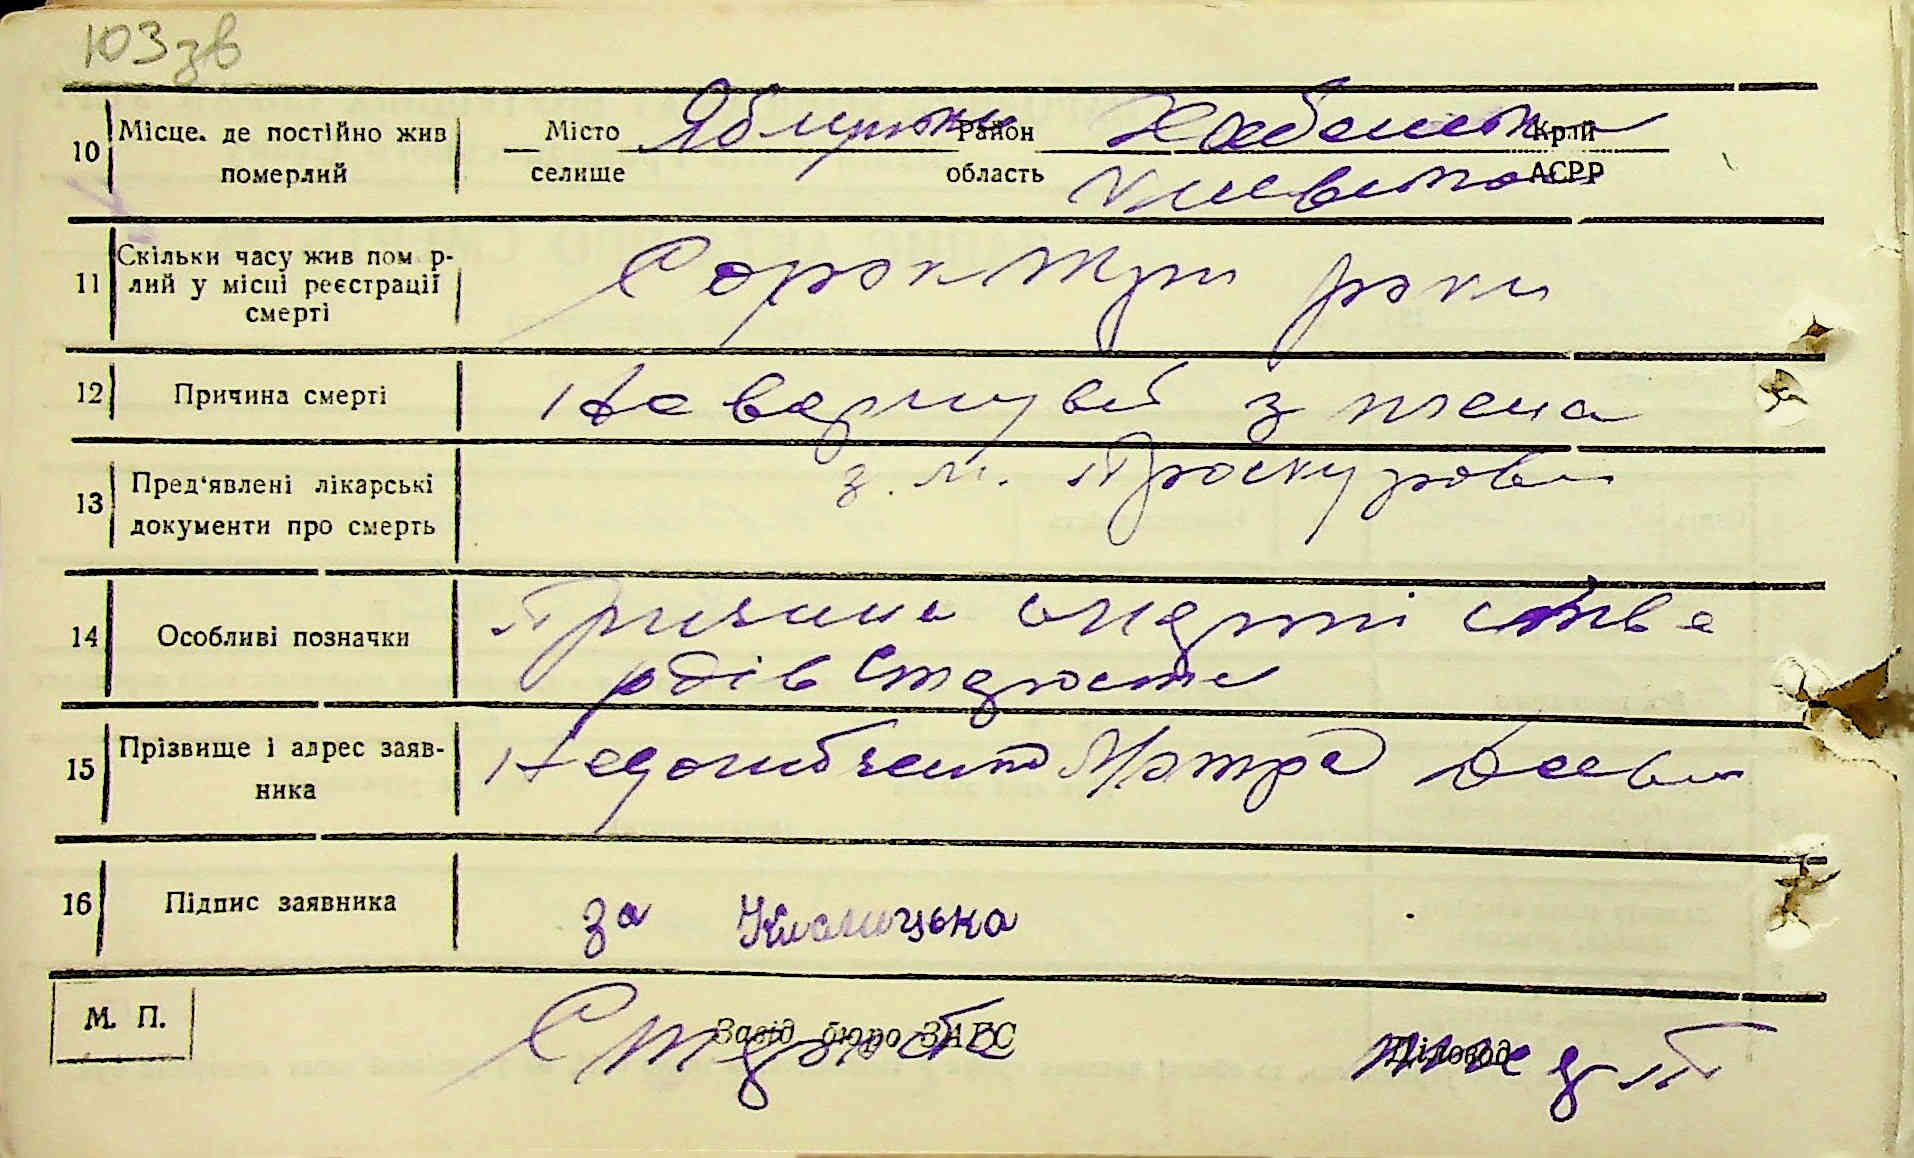 103 зв
10 Місце. де постійно жив померлий
Місто селище Яблунівка Район область Крій АСРР
Київської
11 Скільки часу жив пом р-лий у місці реєстрації смерті
Сорок три роки
12 Причина смерті
Не вернувсь з плена
13 Пред'явлені лікарські документи про смерть
з. м. Проскурова
14 Особливі позначки
Причина смерті ствe
рдів Староста
15 Прізвище і адрес заяв-ника
16 Підпис заявника
за
М. П.
Завід бюро ЗАГС Діловод
Староста